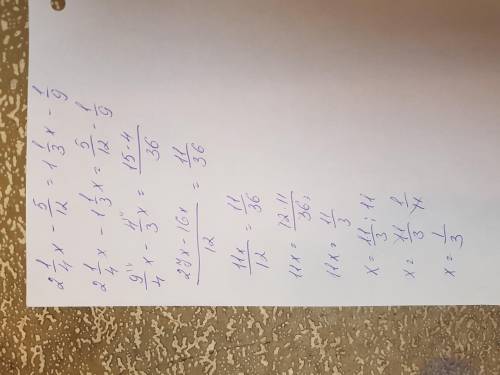 2 1/4 x - 5/12 = 1 1/3 x - 1/9
2 1/4 x - 1 1/3 x = 5/12 - 1/9
9/4 x - 4/3 x = 15-4/36
27x - 16x/12 = 11/36
11x/12 = 11/36
11x = 12·11/36;
11x = 11/3
x = 11/3 : 11
x = 11/3 · 1/11
x = 1/3